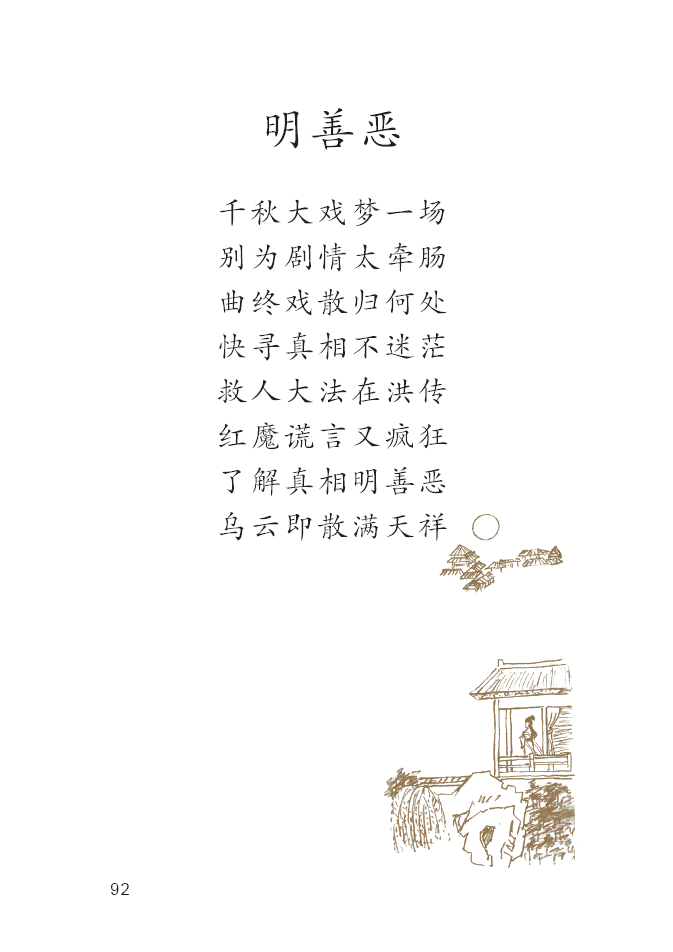 明善恶
千秋大戏梦一场
别为剧情太牵肠
曲终戏散归何处
快寻真相不迷茫
救人大法在洪传
红魔谎言又疯狂
了解真相明善恶
乌云即散满天祥
92